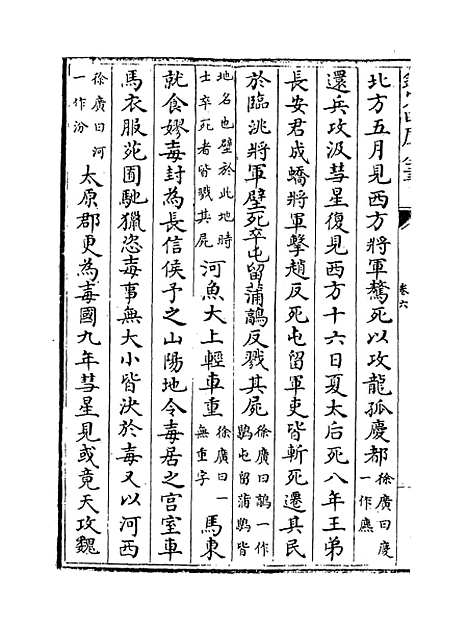 卷六
北方五月見西方將軍驁死以攻龍孤慶都徐廣曰慶一作應
還兵攻汲彗星復見西方十六日夏太后死八年王弟
長安君成蟜將軍擊趙反死屯留軍吏皆斬死遷其民
於臨洮將軍壁死卒屯留蒲鶮反戮其屍徐廣曰鶮一作鶡屯留蒲鶡皆
地名也壁於此地時士卒死者皆戮其屍河魚大上輕車重徐廣曰一無重字馬東
就食嫪毐封為長信侯予之山陽地令毐居之宮室車
馬衣服苑囿馳獵恣毐事無大小皆決於毐又以河西
徐廣曰河一作汾太原郡更為毐國九年彗星見或竟天攻魏